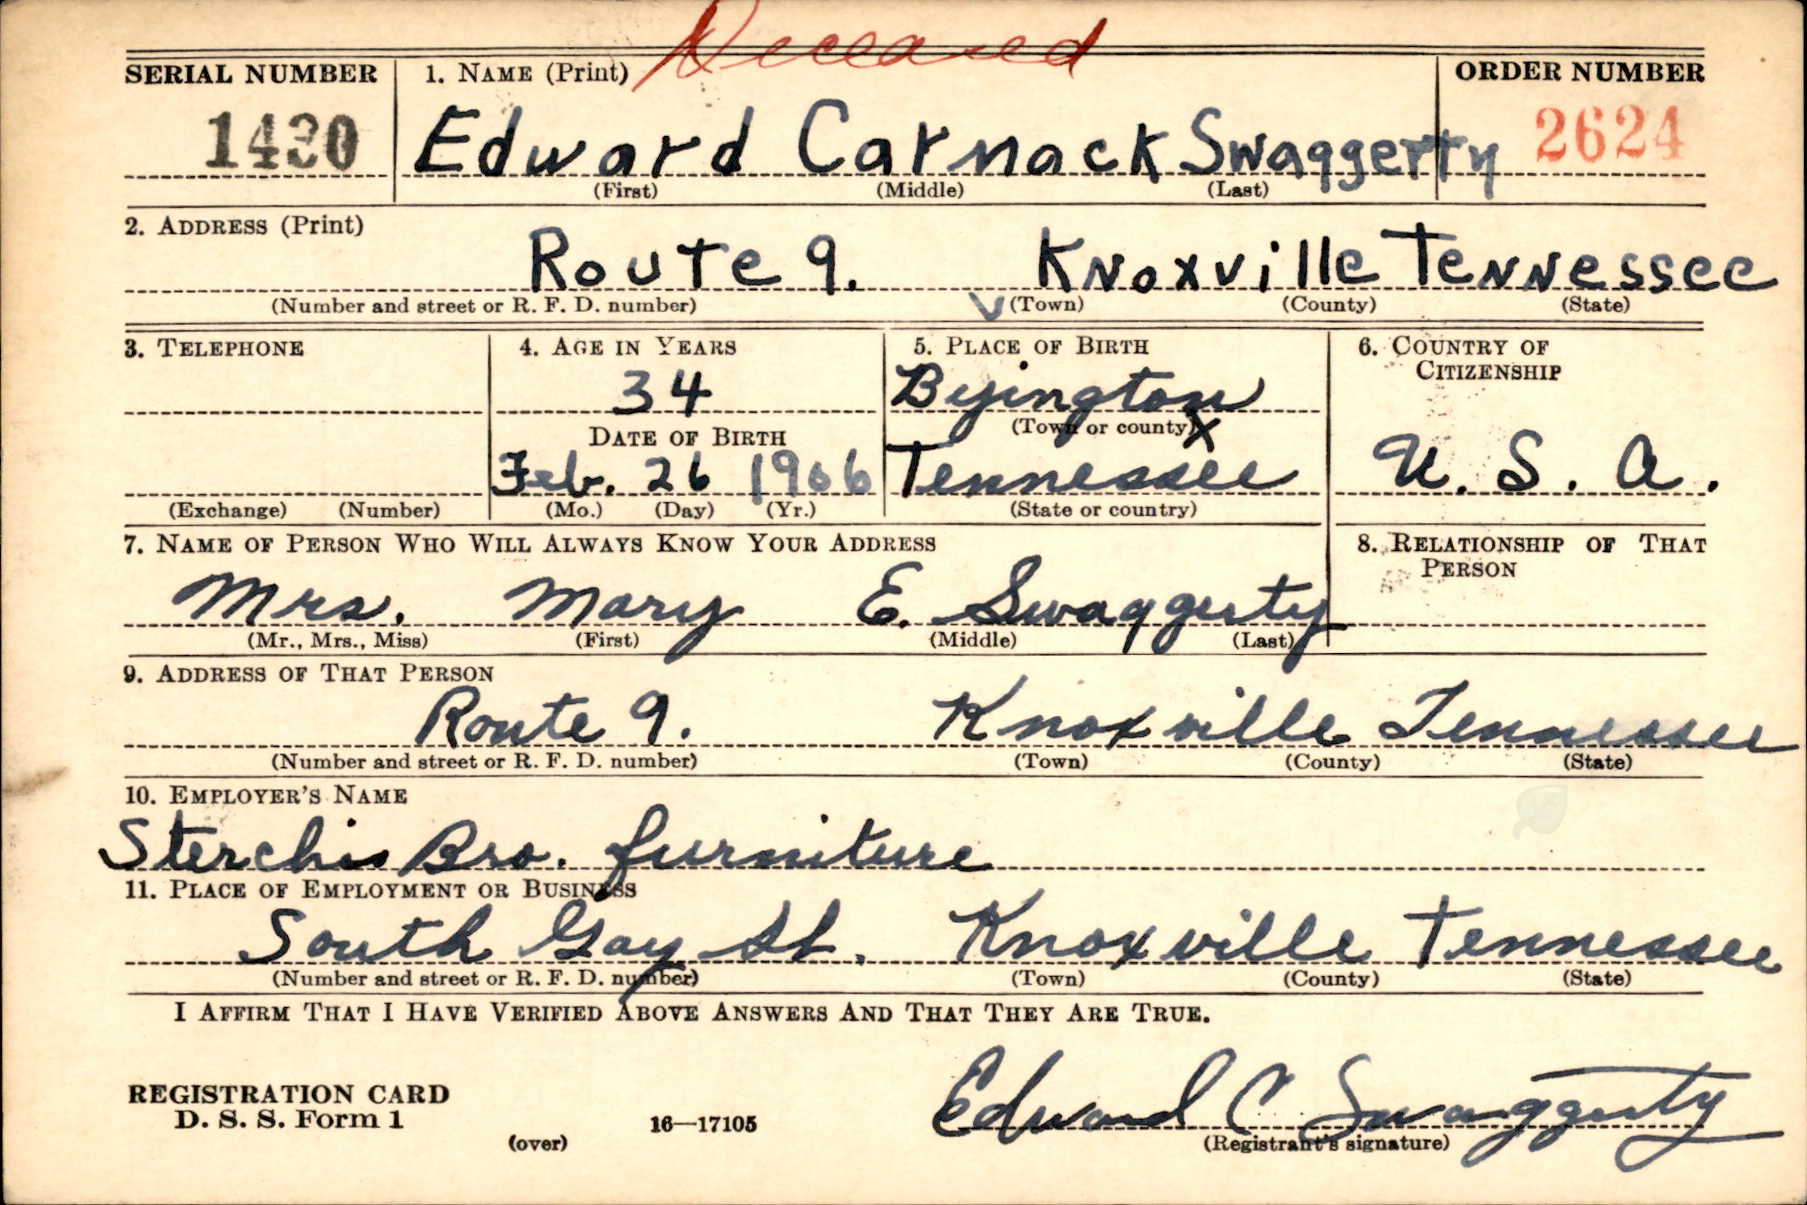 Deceased
SERIAL NUMBER 1. NAME (Print) ORDER NUMBER
1430 Edward Carmack Swaggerty 2624
(First) (Middle) (Last)
2. ADDRESS (Print)
Route 9. Knoxville Tennessee
(Number and street or R. F. D. number) (Town) (County) (State)
3. TELEPHONE 4. AGE IN YEARS 5. PLACE OF BIRTH 6. COUNTRY OF CITIZENSHIP
34 Byington
DATE OF BIRTH (Town or county)
Feb. 26 1906 Tennessee U. S. A.
(Exchange) (Number) (Mo.) (Day) (Yr.) (State or country)
7. NAME OF PERSON WHO WILL ALWAYS KNOW YOUR ADDRESS 8. RELATIONSHIP OF THAT PERSON
Mrs. Mary E. Swaggerty
(Mr., Mrs., Miss) (First) (Middle) (Last)
9. ADDRESS OF THAT PERSON
Route 9. Knoxville Tennessee
(Number and street or R. F. D. number) (Town) (County) (State)
10. EMPLOYER'S NAME
Sterchis Bro. furniture
11. PLACE OF EMPLOYMENT OR BUSINESS
South Gay St. Knoxville Tennessee
(Number and street or R. F. D. number) (Town) (County) (State)
I AFFIRM THAT I HAVE VERIFIED ABOVE ANSWERS AND THAT THEY ARE TRUE.
REGISTRATION CARD
D. S. S. Form 1
(over) 16—17105
Edward C Swaggerty
(Registrant's signature)